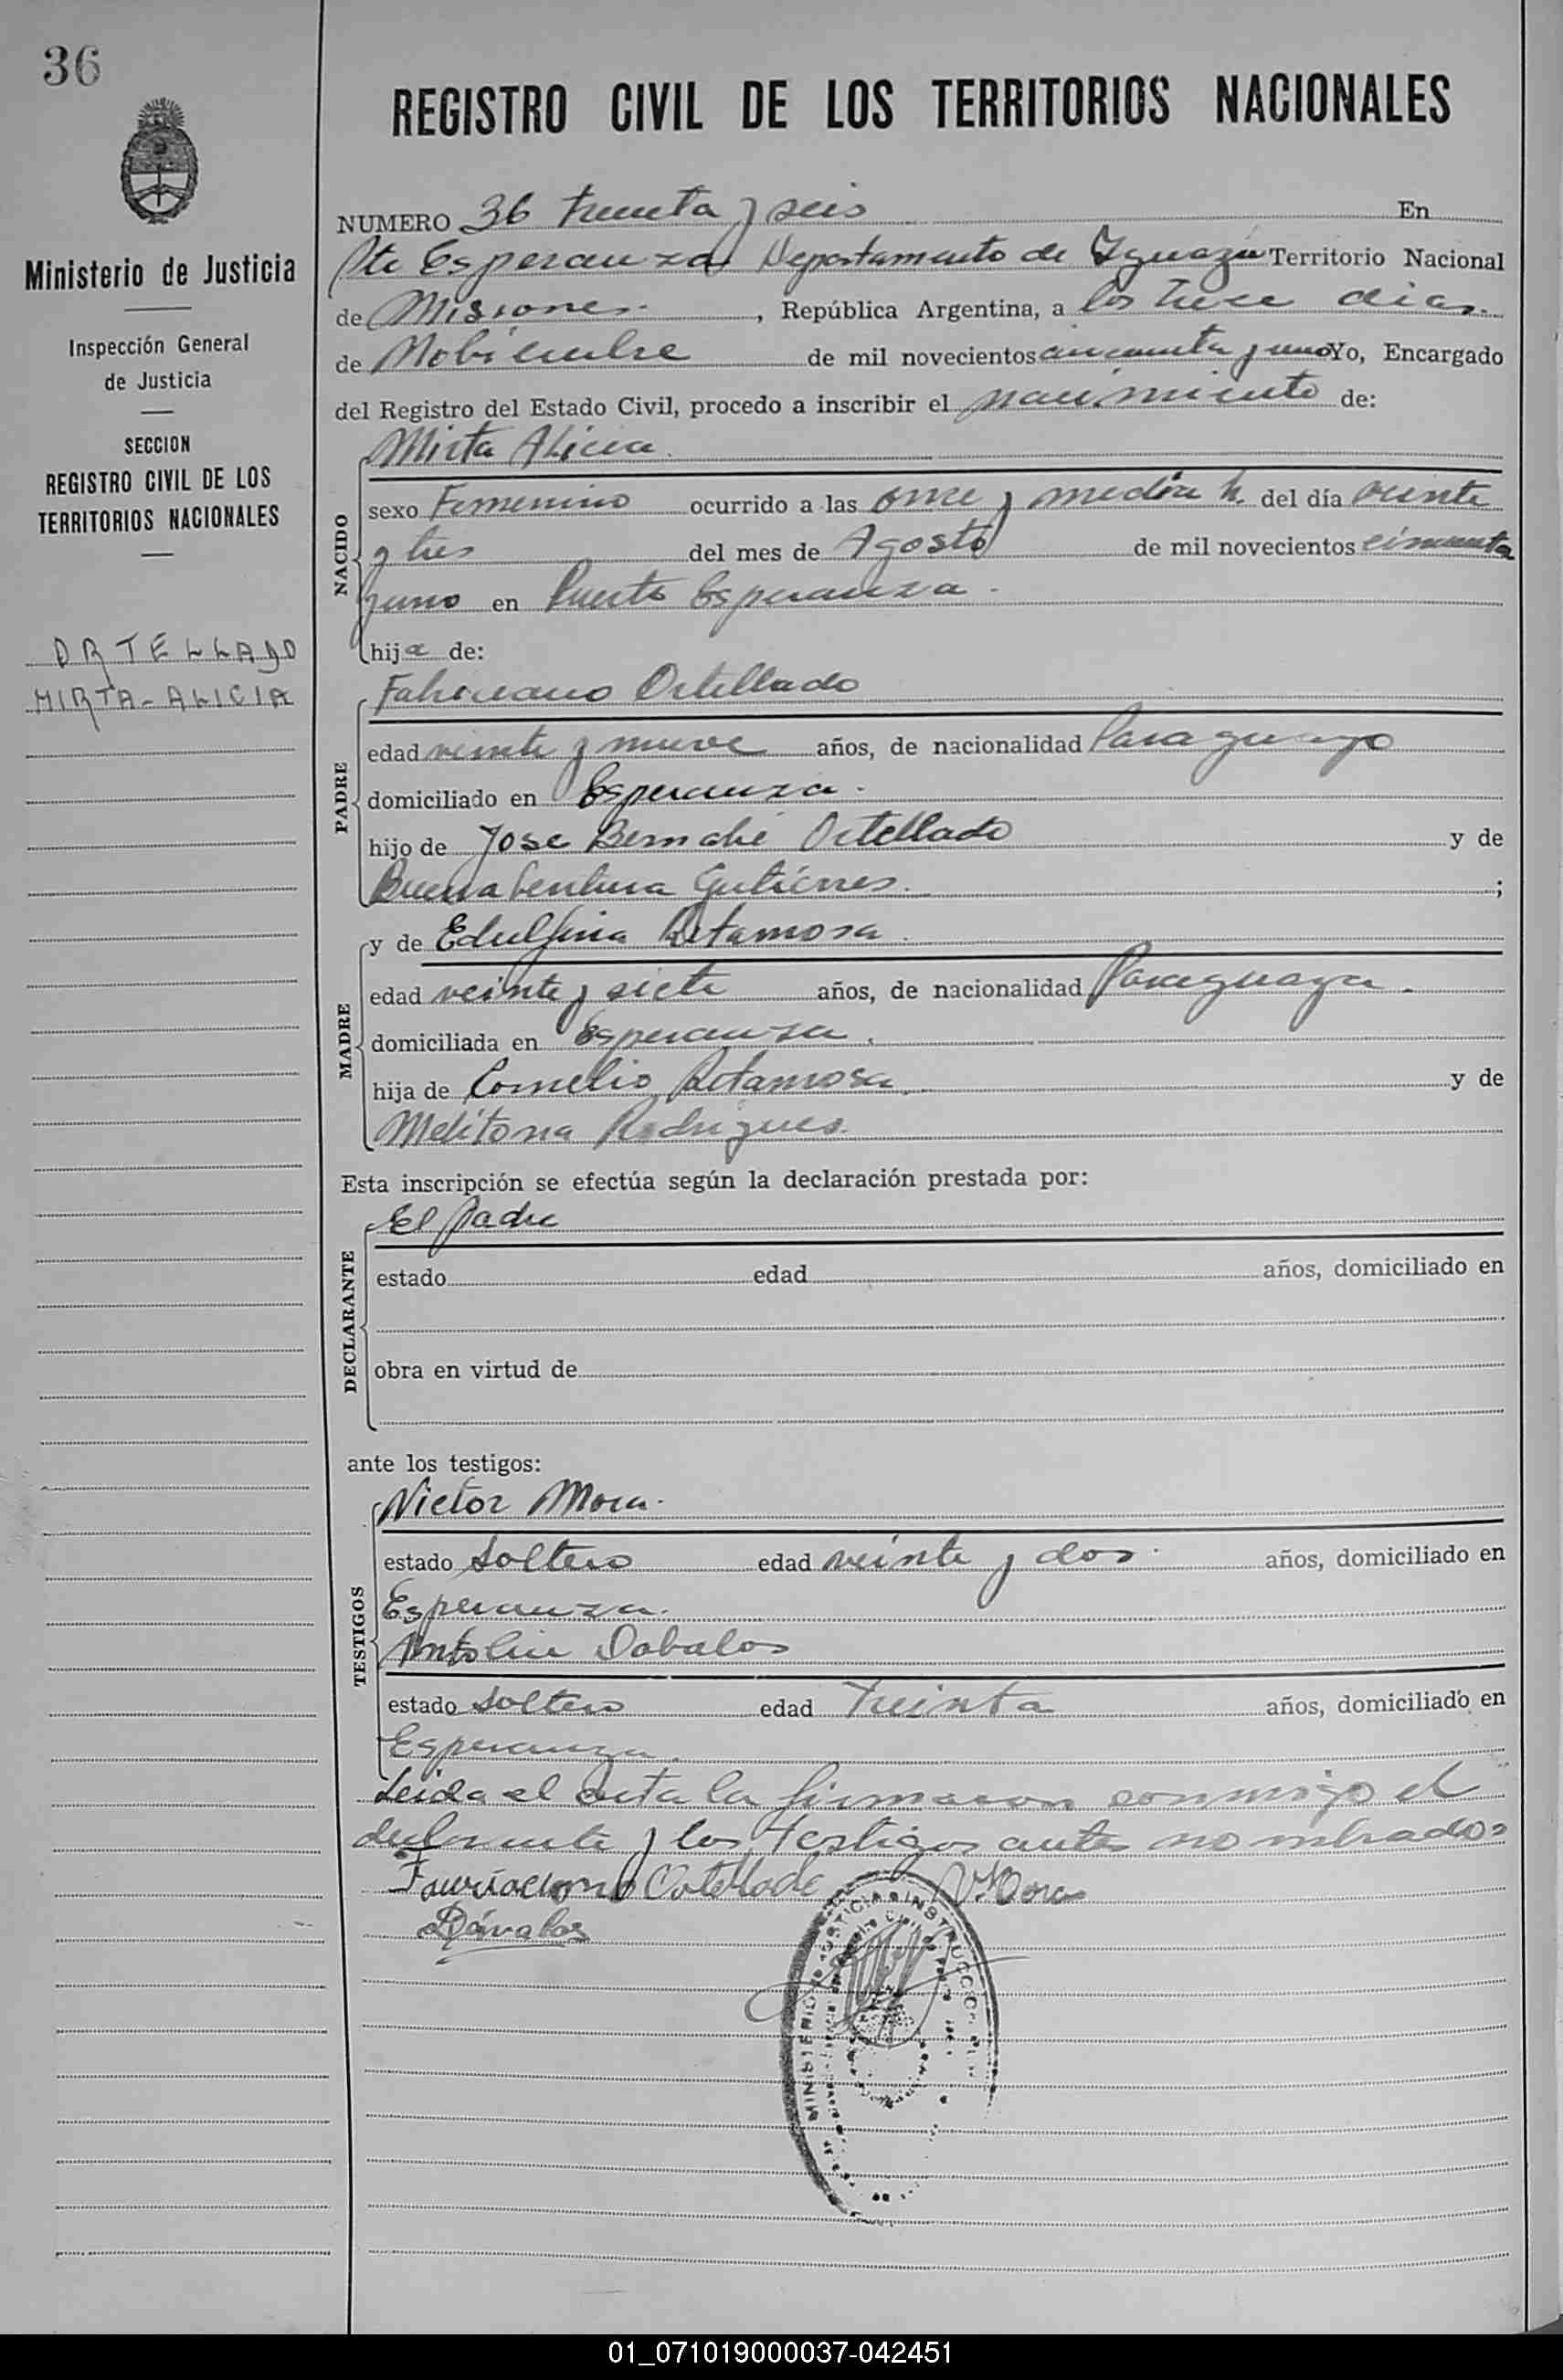 36
REGISTRO CIVIL DE LOS TERRITORIOS NACIONALES
Ministerio de Justicia
Inspección General
de Justicia
SECCION
REGISTRO CIVIL DE LOS
TERRITORIOS NACIONALES
ORTELLADO
MIRTA-ALICIA
NUMERO 36 treinta y seis En
Pto Esperanza Departamento de Iguazu Territorio Nacional
de Misiones. , República Argentina, a los trece dias.
de Nobiembre de mil novecientos cincuenta y uno Yo, Encargado
del Registro del Estado Civil, procedo a inscribir el nacimiento de:
NACIDO
Mirta Alicia.
sexo Femenino ocurrido a las once y media h. del día veinte
y tres del mes de Agosto de mil novecientos cincuenta
y uno en Puerto Esperanza.
hija de:
PADRE
Ortellado
edad veinte y nueve años, de nacionalidad Paraguayo
domiciliado en Esperanza.
hijo de Jose Bernabé Ortellado y de
Buenabentura Gutiérres. ;
MADRE
y de Edulfina Retamosa.
edad veinte y siete años, de nacionalidad Paraguaya.
domiciliada en Esperanza.
hija de Cornelio Retamosa. y de
Melitona Rodrigues.
Esta inscripción se efectúa según la declaración prestada por:
DECLARANTE
El padre
estado edad años, domiciliado en
obra en virtud de
ante los testigos:
TESTIGOS
Victor Mora.
estado Soltero edad veinte y dos. años, domiciliado en
Esperanza.
Antolin Dabalos
estado Soltero edad treinta años, domiciliado en
Esperanza.
Leida el acta la firmaron conmigo el
declarante y los testigos antes nombrados
Ortellado V. Mora
Dávalos
MINISTERIO DE JUSTICIA INSTRUCCION
01_071019000037-042451